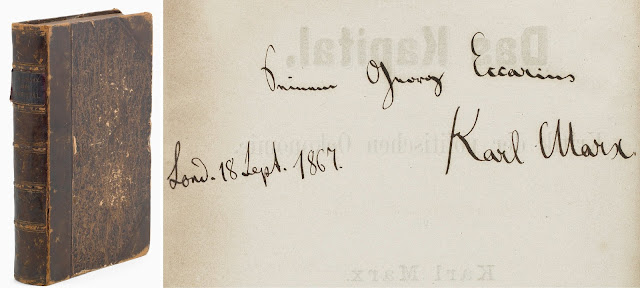 Das Kapital.
Seinem Georg Eccarius
der politischen Oekonomie.
Karl Marx
Lond. 18 Sept. 1867.
Karl Marx.